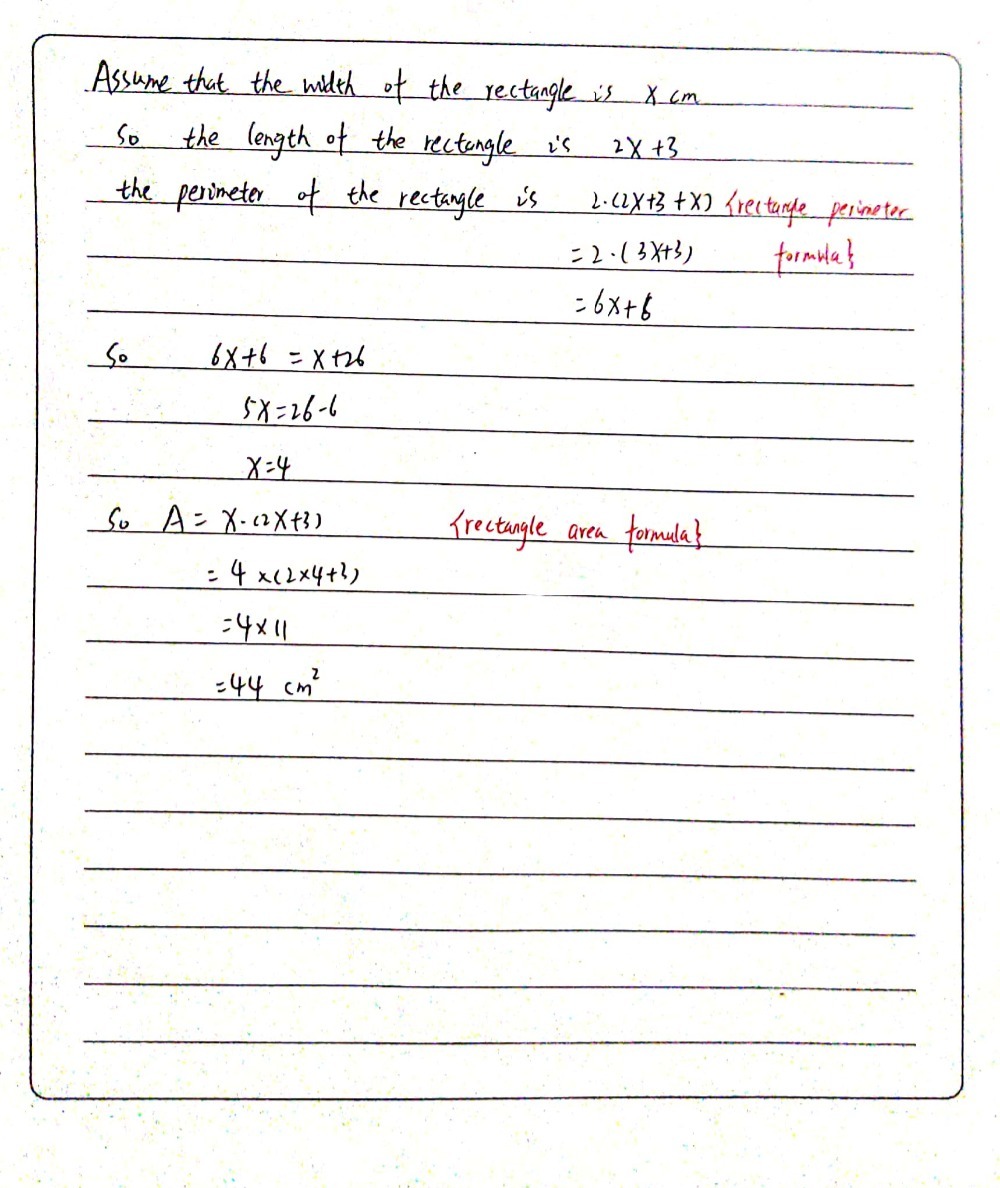 Assume that the width of the rectangle is x cm
So the length of the rectangle is 2x+3
the perimeter of the rectangle is 2·(2x+3+x) {rectangle perimeter
=2·(3x+3) formula}
=6x+6
So 6x+6=x+26
5x=26-6
x=4
So A=x·(2x+3) {rectangle area formula}
=4×(2×4+3)
=4×11
=44 cm²